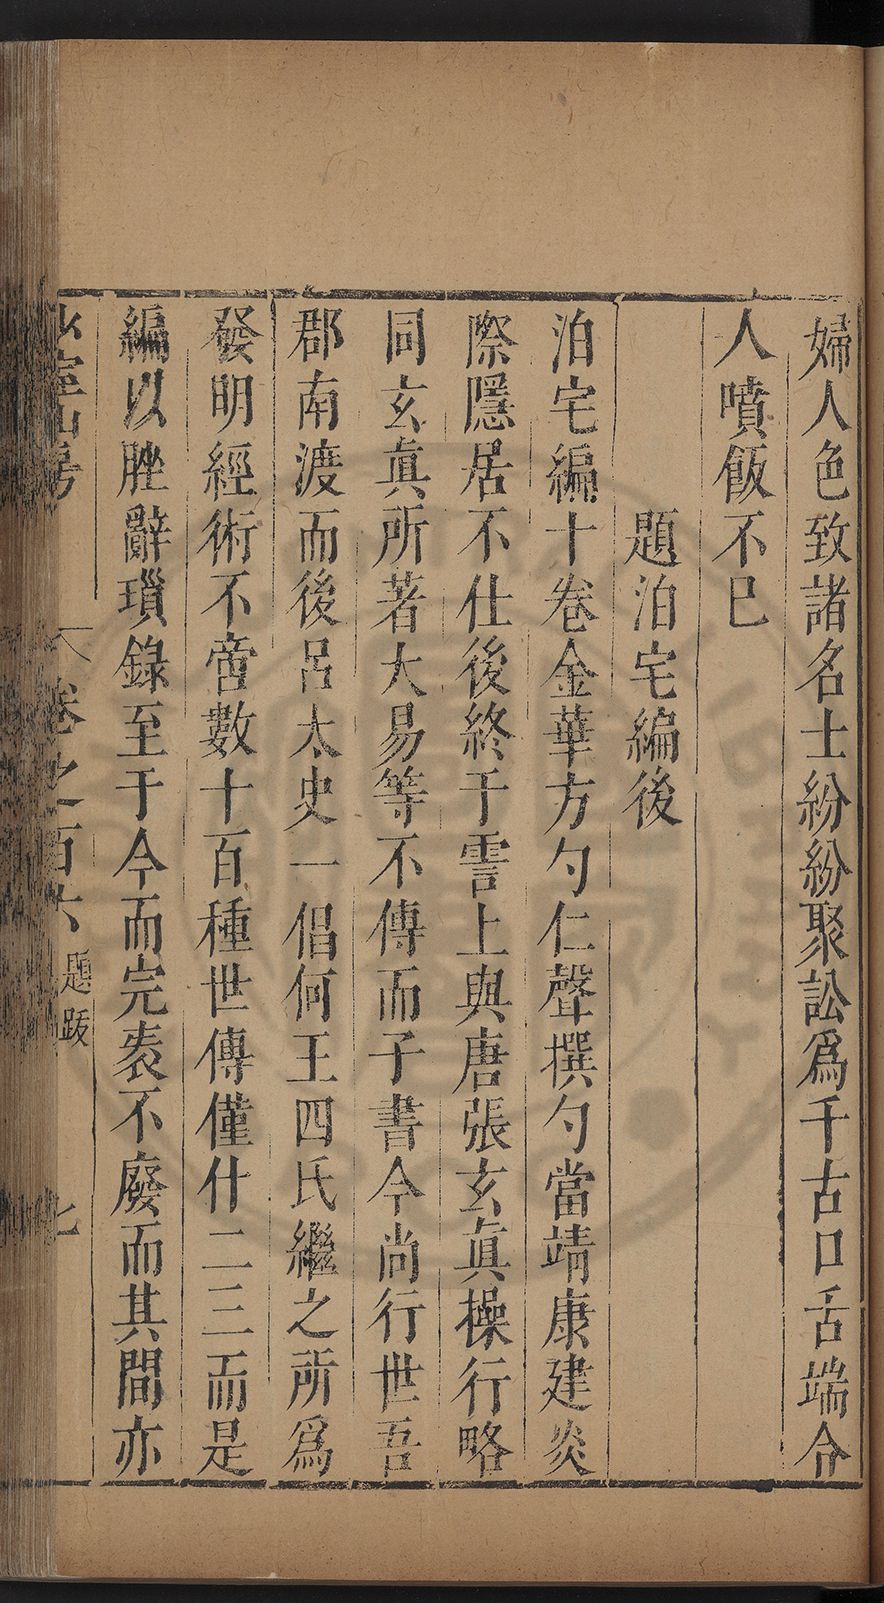 婦人色致諸名士紛紛聚訟爲千古口舌端令
人噴飯不已
題泊宅編後
泊宅編十卷金華方勺仁聲撰勺當靖康建炎
際隱居不仕後終于霅上與唐張玄眞操行略
同玄眞所著大易等不傳而子書今尚行世吾
郡南渡而後呂太史一倡何王四氏繼之所爲
發明經術不啻數十百種世傳僅什二三而是
編以脞辭瑣錄至于今而完袠不廢而其間亦
少室山房
卷之百六 題跋
七